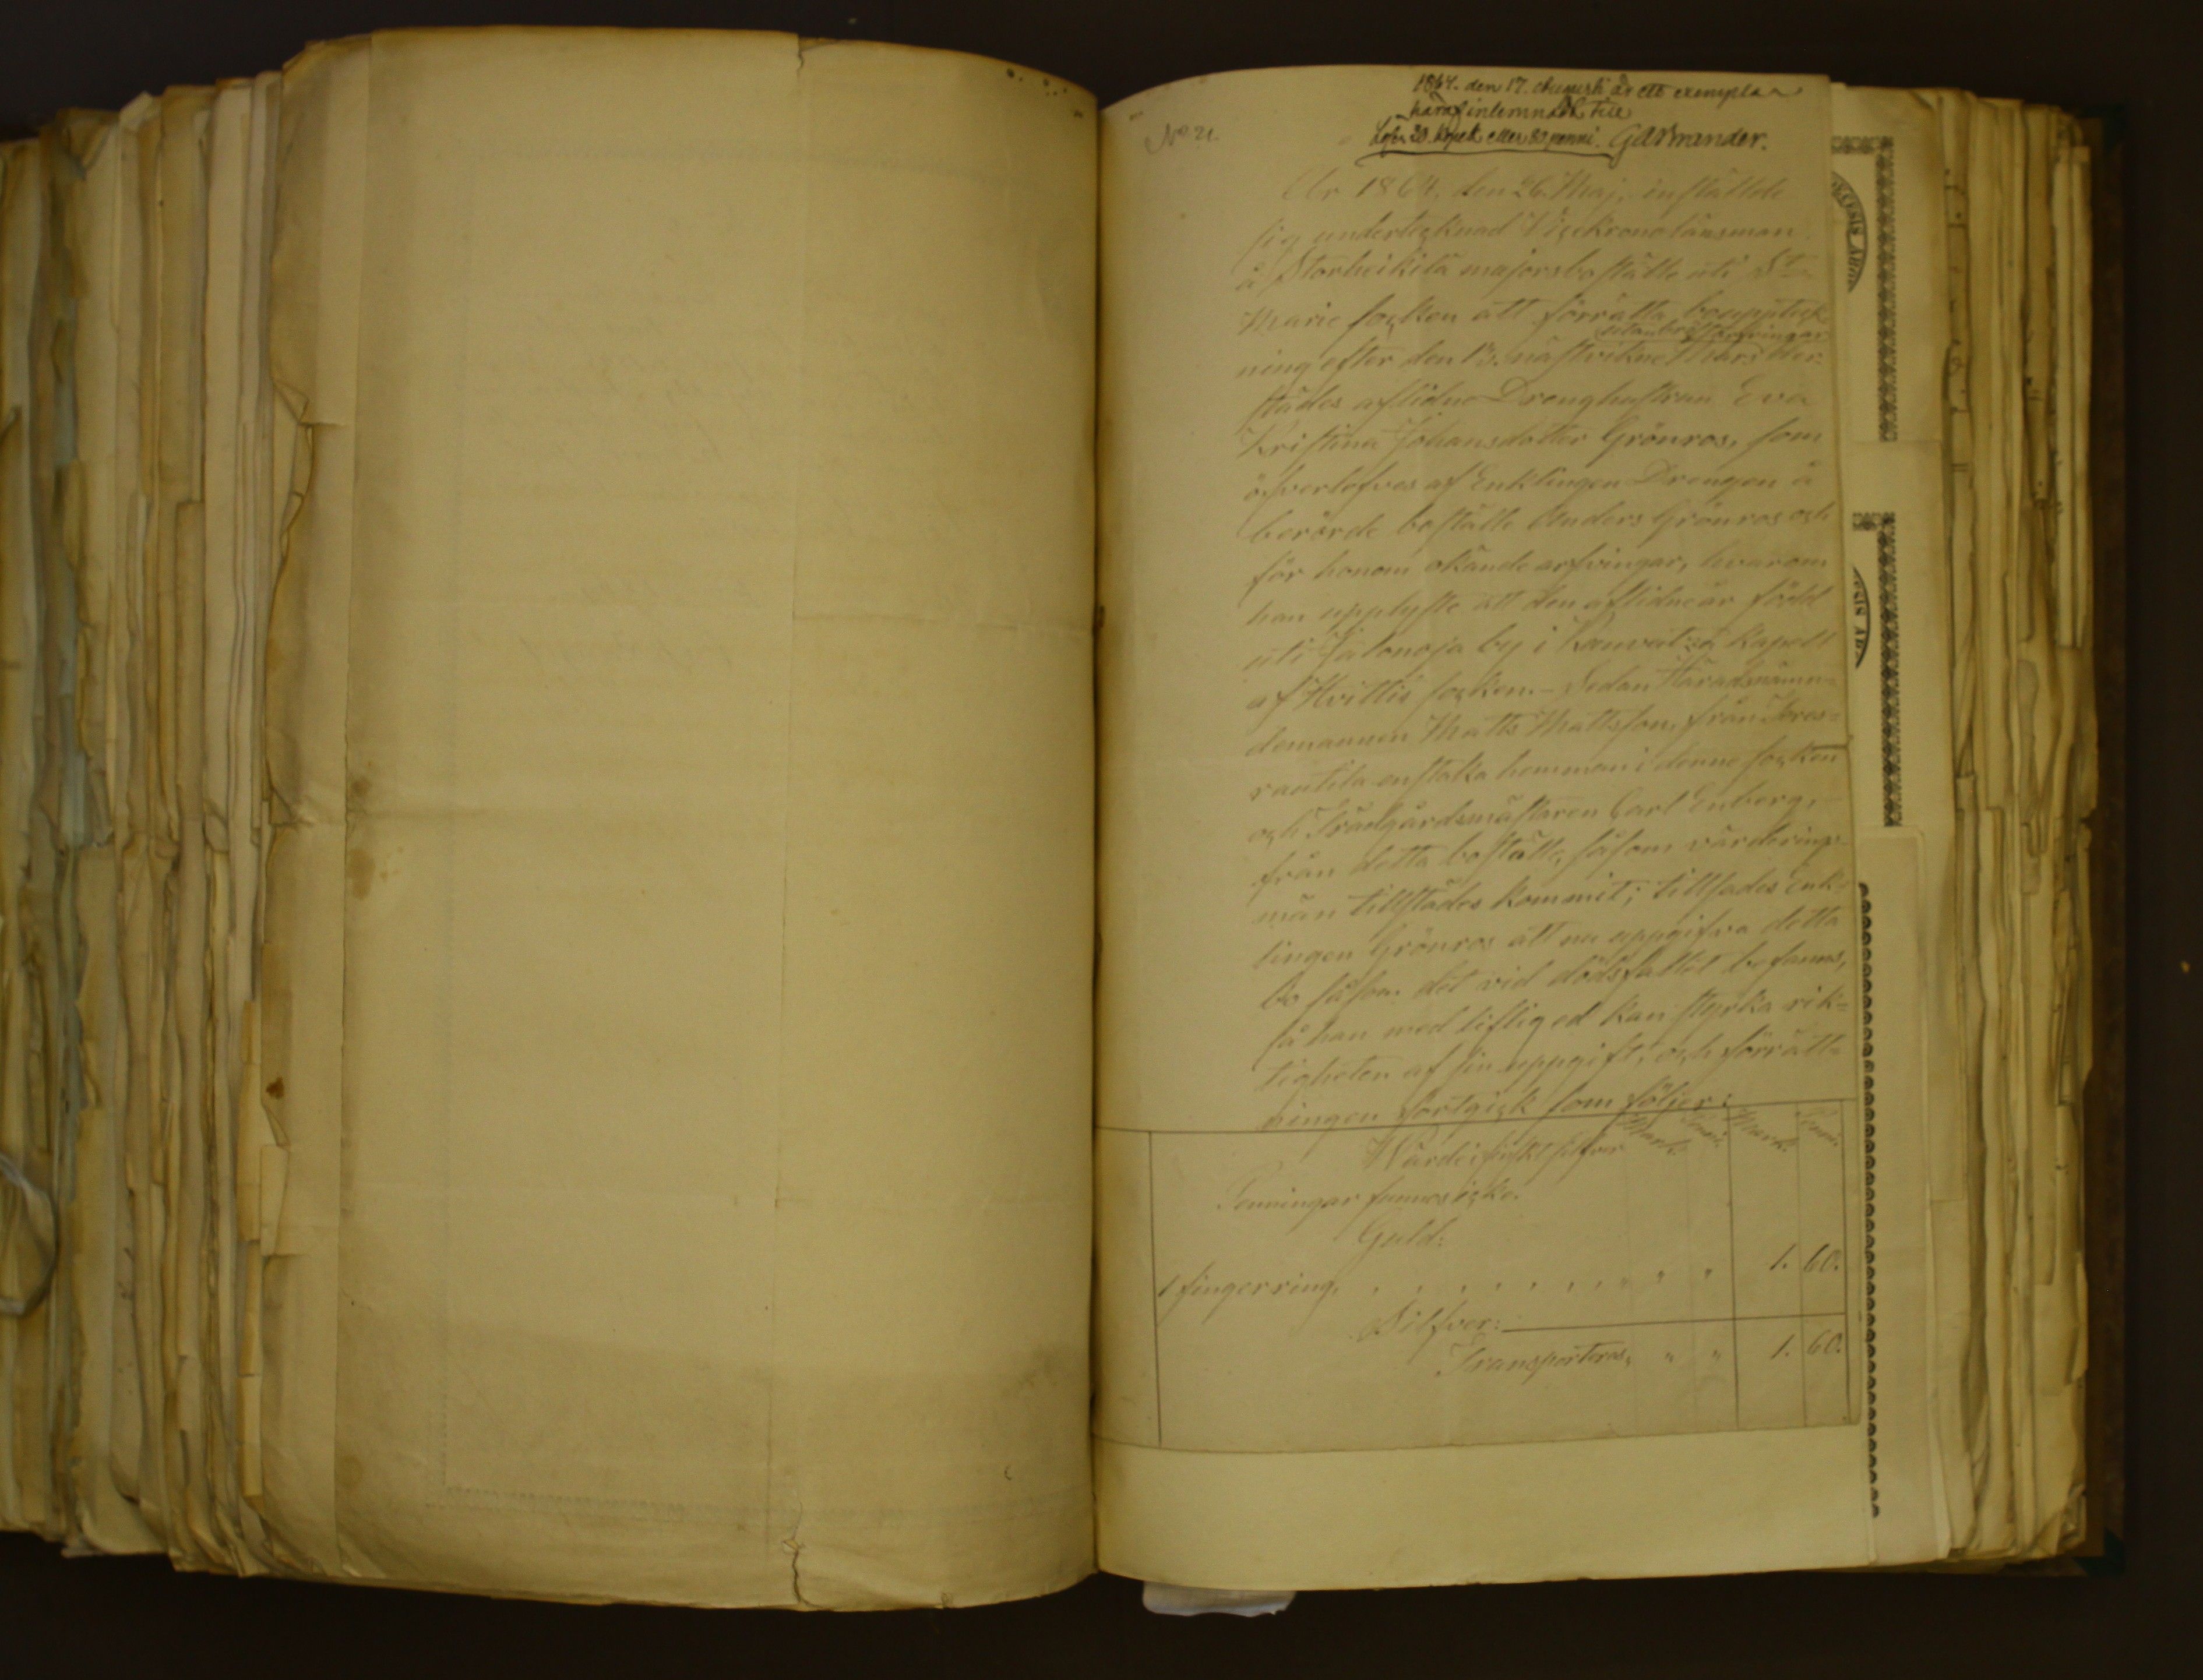 1864. den 17. Augusti är ett exemplar
häraf inlemnadt till
Lösen 20. kopek eller 80 penni. G A Brander.
No 21.
År 1864, den 26. Maj, inställde
sig undertecknad Vicekronolänsman
å Storheikilä majorsboställe uti S:t
Marie socken att förrätta bouppteck
utan bröstarfvingar
ning efter den 13. nästvikne Mars der-
städes aflidne Drenghustrun Eva
Kristina Johansdotter Grönros, som
öfverlefves af Enklingen Drengen å
berörde boställe Anders Grönros och
för honom okände arfvingar, hvarom
han upplyste att den aflidne är född
uti Jalonoja by i Kauvatsa kapell
af Hvittis socken. – Sedan Häradsnämn-
demannen Matts Mattsson, från
rantila enstaka hemman i denne socken
och Trädgårdsmästaren Carl Enberg,
från detta boställe, såsom värderings-
män tillstädes kommit; tillsades Enk-
lingen Grönros att nu uppgifva detta
bo såsom det vid dödsfallet befanns,
så han med liflig ed kan styrka rik-
tigheten af sin uppgift, och förrätt-
ningen fortgick som följer:
Värde i ryskt silfver Mark. Penni. Mark. Penni.
Penningar funnos icke.
Guld:
1 fingerring, . . . . . . . . " " " 1. 60.
Silfver:
Transporteras, " " 1. 60.